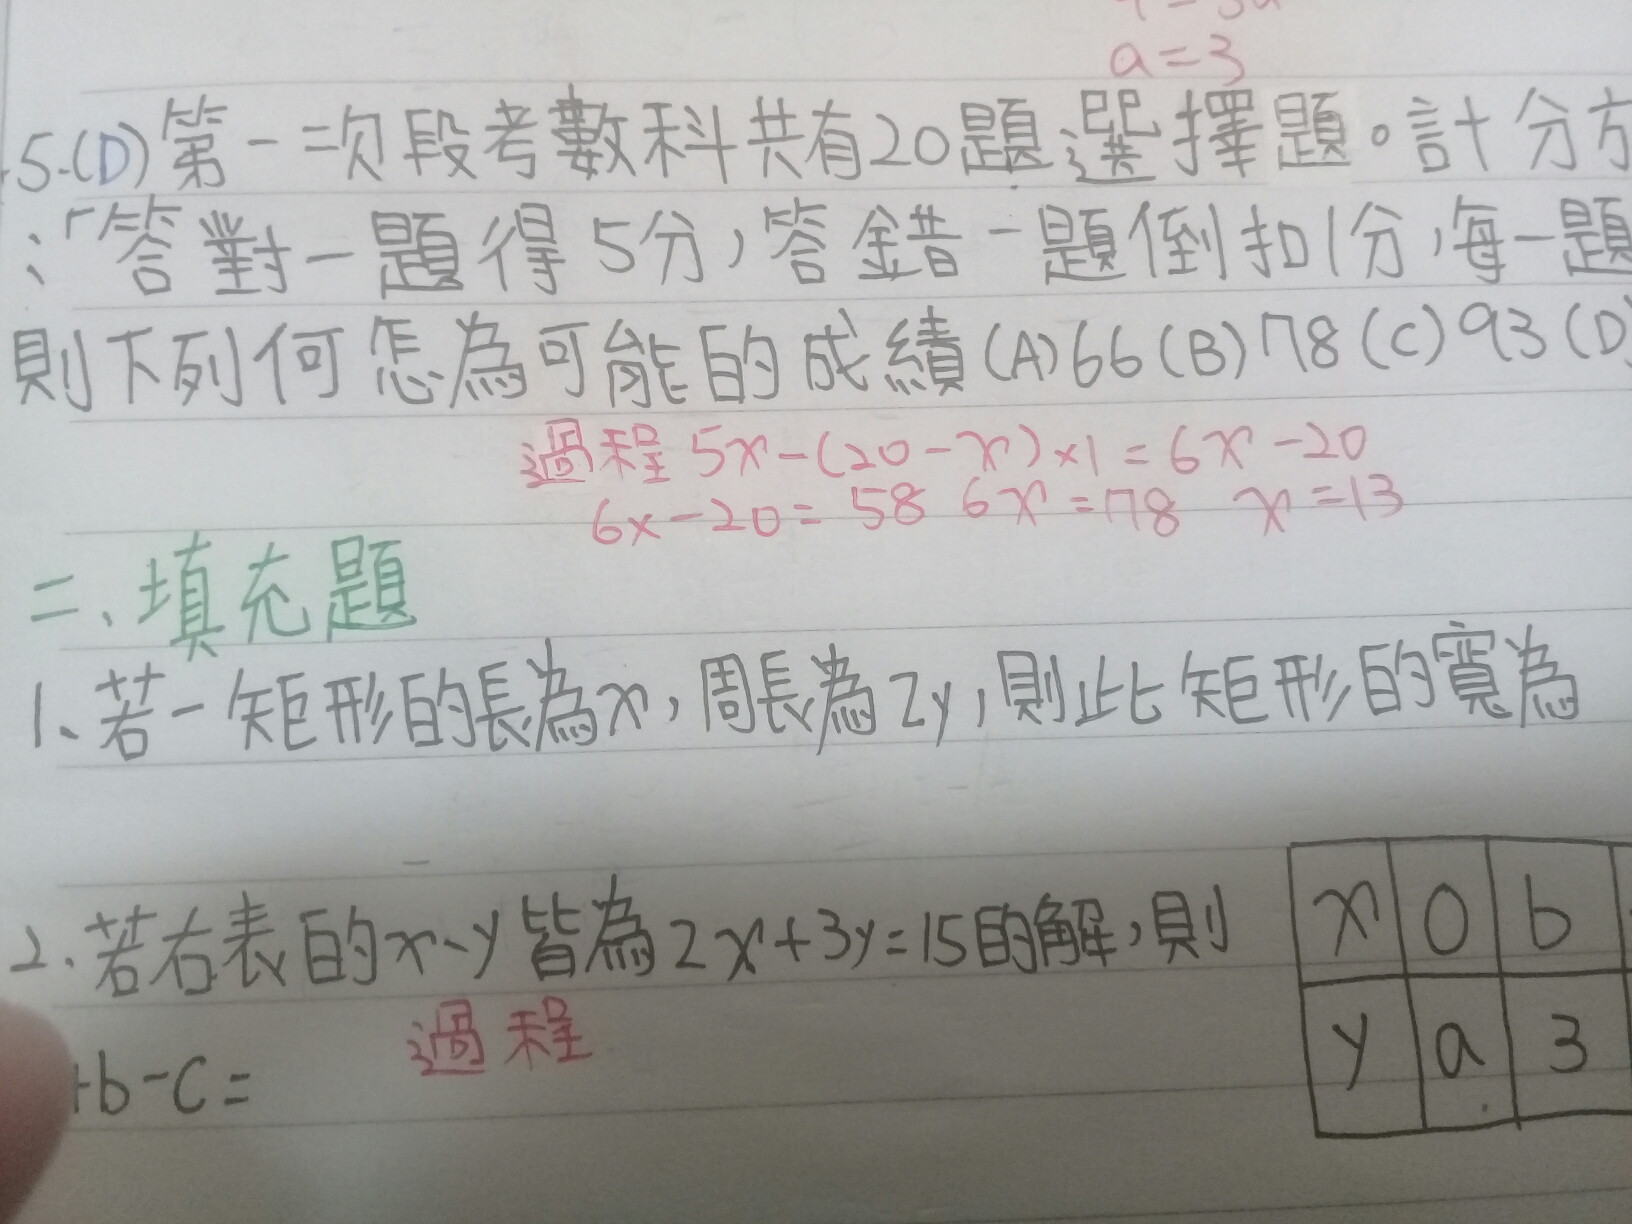 a=3
5.(D)第一次段考數科共有20題選擇題。計分方
:「答對一題得5分,答錯一題倒扣1分,每一題
則下列何怎為可能的成績(A)66(B)78(C)93(D)
過程 5x-(20-x)×1=6x-20
6x-20=58 6x=78 x=13
二、填充題
1、若一矩形的長為x,周長為2y,則此矩形的寬為
2、若右表的x、y皆為2x+3y=15的解,則
x 0 b
y a 3
+b-c=
過程